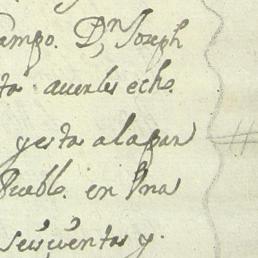 ampo. D.n Joseph
ta auerles echo
y esta a la par
Puebl. en Vna
seiscientos y